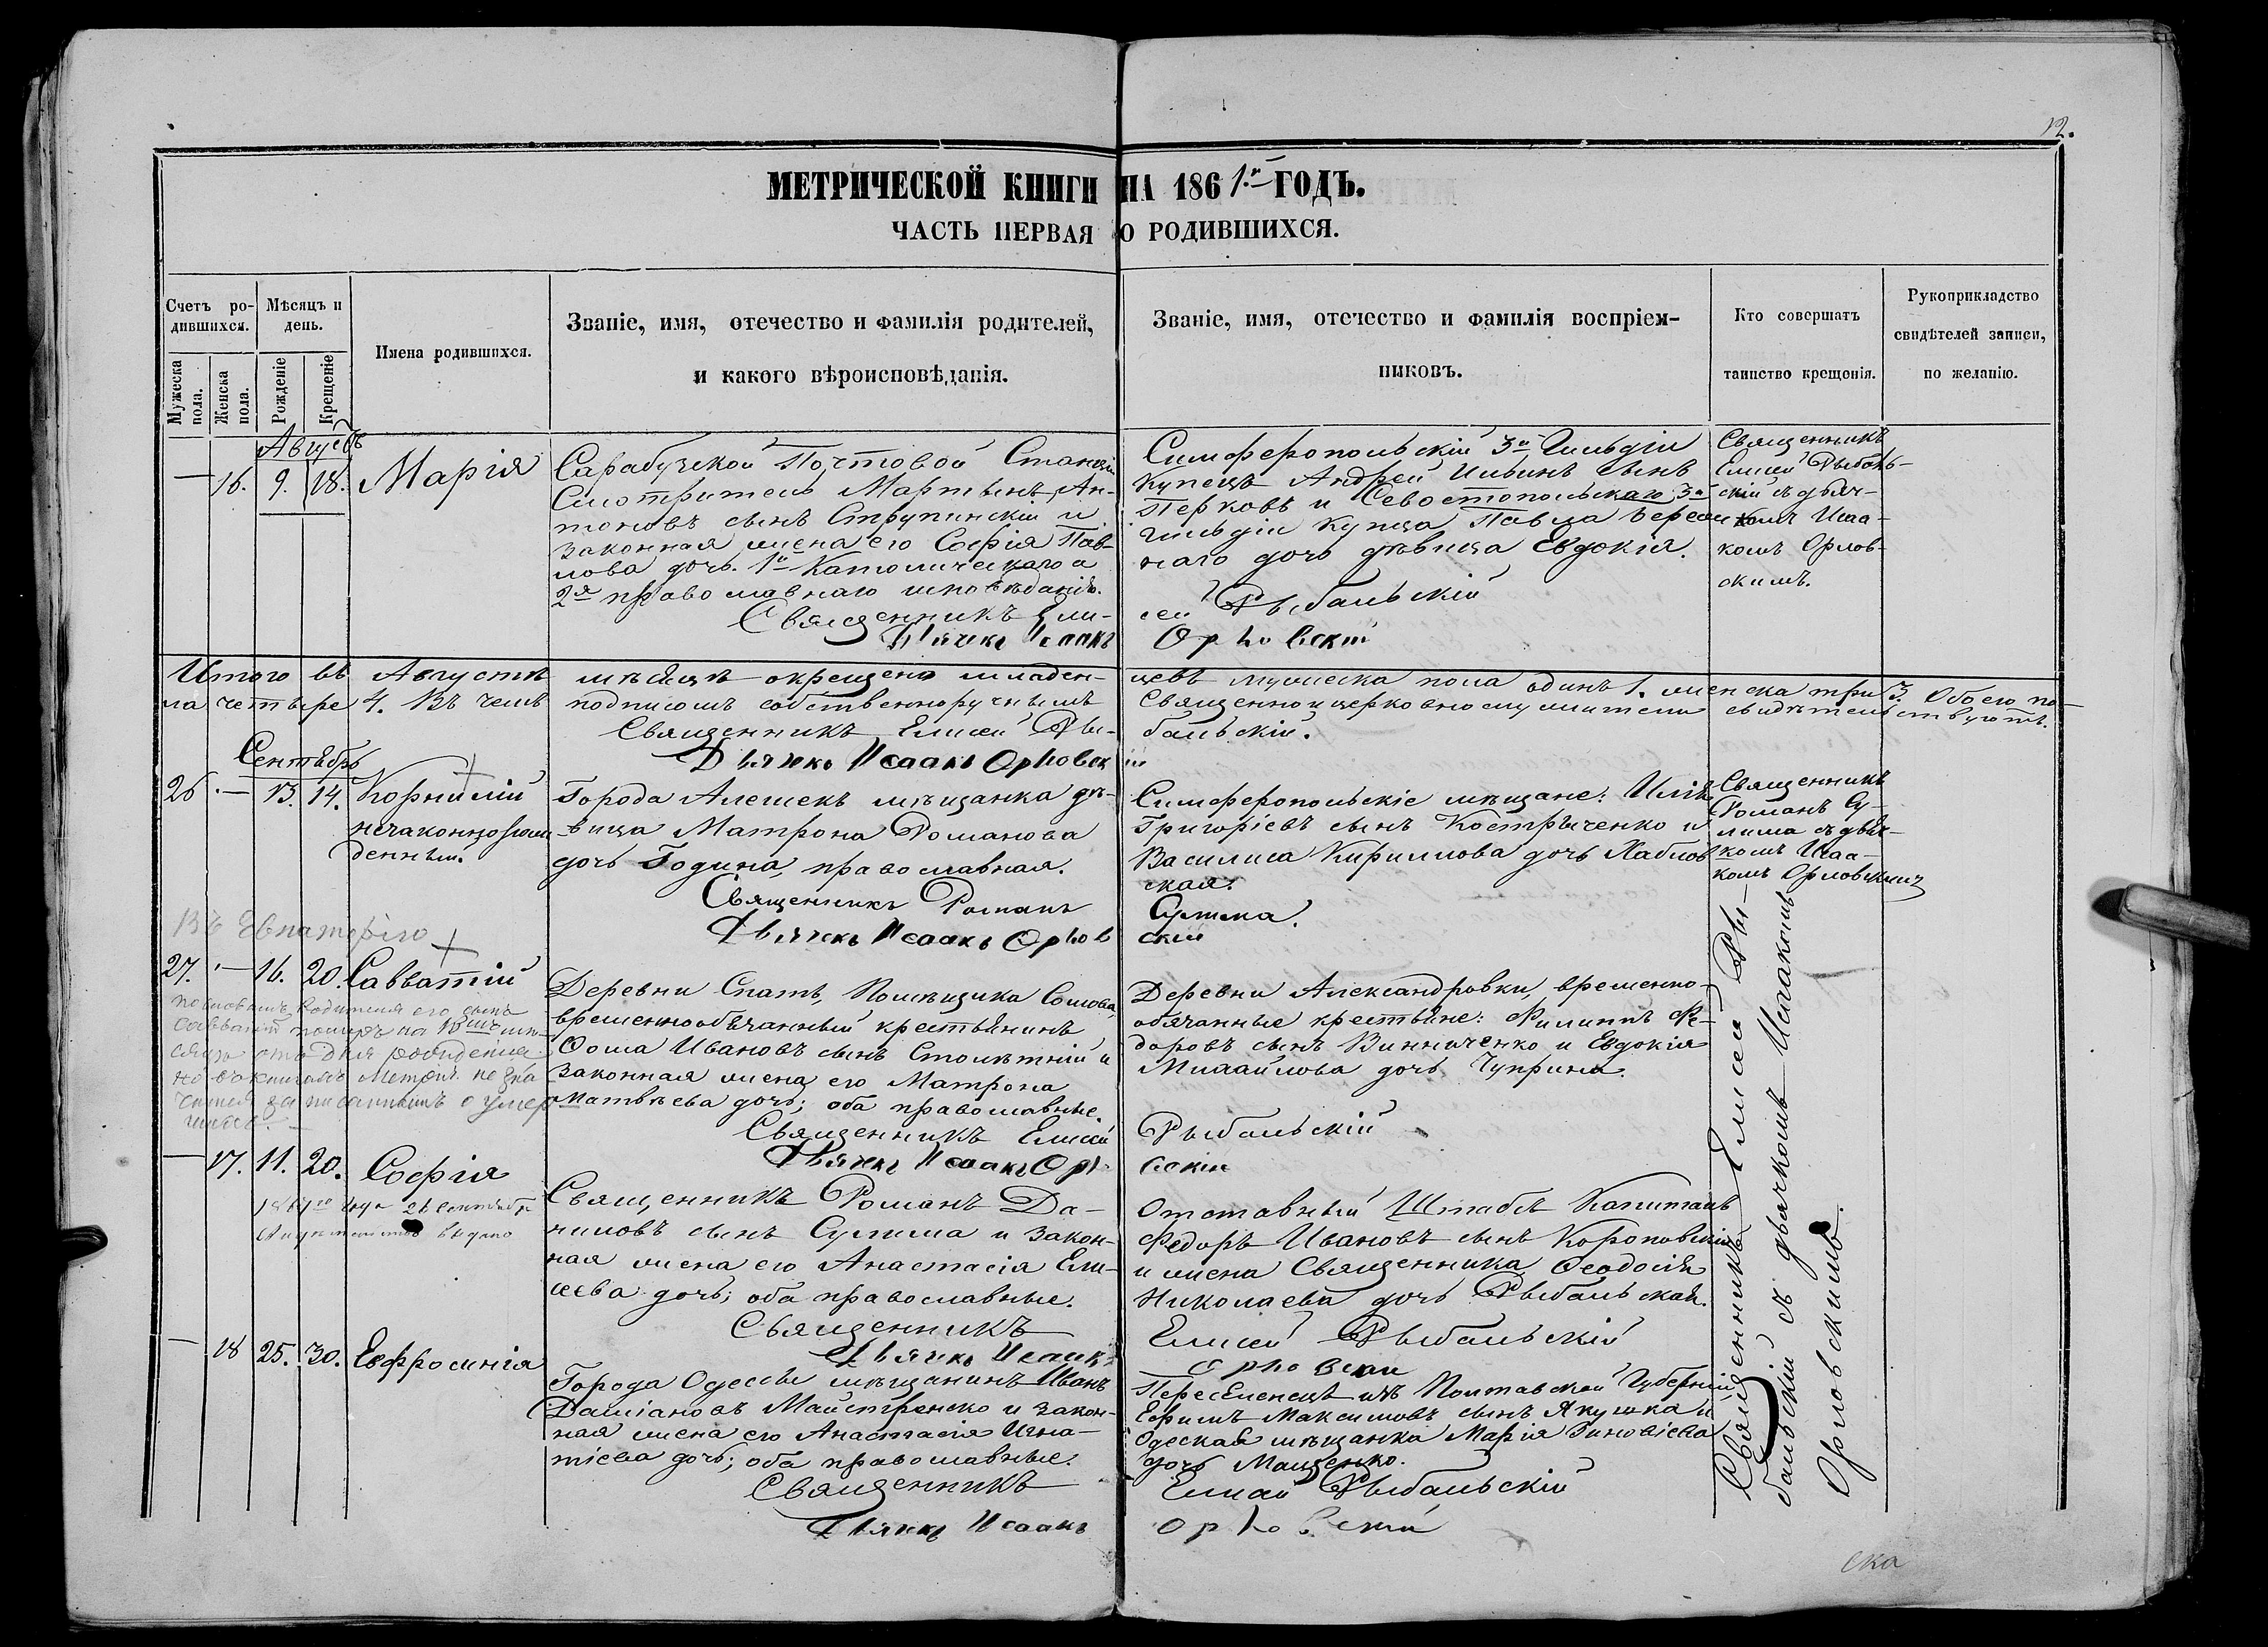 12.
МЕТРИЧЕСКОЙ КНИГИ НА 1861й ГОДЪ.
ЧАСТЬ ПЕРВАЯ О РОДИВШИХСЯ.
Счетъ ро-
дившихся.
Мужеска пола.
Женска пола.
Мѣсяцъ и
день.
Рожденіе
Крещеніе
Имена родившихся.
Званіе, имя, отечество и фамилія родителей,
и какого вѣроисповѣданія.
Званіе, имя, отечество и фамилія воспріем-
никовъ.
Кто совершатъ
таинство крещенія.
Рукоприкладство
свидѣтелей записи,
по желанію.
Августъ
— 16. 9. 18. Марія
Сарабузской Почтовой Станціи
Смотритель Мартынъ Ан-
тоновъ сынъ Струпинскій и
законная жена его Софія Пав-
лова дочь. 1й Католическаго а
2я православнаго исповѣданія.
Священникъ Ели-
Дьячекъ Исаакъ
Симферопольскій 3й Гильдіи
купецъ Андрей Ильинъ сынъ
Перковъ и Севостопольскаго 3й
гильдіи купца Павла
наго дочь дѣвица Евдокія.
сей Рыбальскій
Орловскій
Священникъ
Елисей Рыбаль-
скій съ дьяч-
комъ Исаа-
комъ Орлов-
скимъ.
Итого въ Августѣ мѣсяцѣ окрещено младен-
цевъ мужеска пола одинъ 1. женска три 3. Обоего по-
ла четыре 4. Въ чемъ подписомъ собственноручнымъ
Священноицерковнослужители свидѣтельствуютъ.
Священникъ Елисей Ры-
бальскій.
Дьячекъ Исаакъ Орловск
ій
Сентябрь
26 — 13. 14. Корнилій
незаконнорож-
денный.
Города Алешекъ мѣщанка дѣ-
вица Матрона Романова
дочь Година, православная.
Священникъ Романъ
Дьячекъ Исаакъ Орлов
Симферопольскіе мѣщане: Илія
Григоріевъ сынъ Костырченко и
Василиса Кириллова дочь Хаблов
ская.
Сулима.
скій
Священникъ
Романъ Су-
лима съ дьяч-
комъ Исаа-
комъ Орловскимъ
Въ Евпаторію
27. — 16. 20. Савватій
по словамъ родителя его сынъ
Савватій померъ на 13мъ мѣ-
сяцѣ отъ дня рожденія
но въ книгахъ Метрич. не зна
чится записаннымъ о умер-
шихъ. —
Деревни Спатъ, Помѣщика Сомова,
временнообязанный крестьянинъ
Ѳома Ивановъ сынъ Столѣтній и
законная жена его Матрона
Матвѣева дочь; оба православные.
Священникъ Елисей
Дьячекъ Исаакъ Орл
Деревни Александровки, временно-
обязанные крестьяне: Филиппъ Ѳе-
доровъ сынъ Винниченко и Евдокія
Михайлова дочь Чуприна.
Рыбальскій
овскій
— 17. 11. 20. Софія
года 26 Сентября
выдано
Священникъ Романъ Да-
ниловъ сынъ Сулима и закон-
ная жена его Анастасія Ели-
сеева дочь; оба православные.
Священникъ
Дьячекъ Исаакъ
Отставный Штабсъ Капитанъ
Федоръ Ивановъ сынъ Короповскій
и жена Священника Ѳеодосія
Николаева дочь Рыбальская.
Елисей Рыбальскій
Орловскій
— 18 25. 30. Евфросинія
Города Одессы мѣщанинъ Иванъ
Даміановъ Майстренко и закон-
ная жена его Анастасія Игна-
тіева дочь; оба православные.
Священникъ
Дьячекъ Исаакъ
Переселенецъ изъ Полтавской Губерніи,
Ефимъ Максимовъ сынъ Якушка и
Одеская мѣщанка Марія Зиновіева
дочь Мащенко.
Елисей Рыбальскій
Орловскій
Священникъ Елисей Ры-
бальскій съ дьячкомъ Исаакомъ
Орловскимъ.
ска